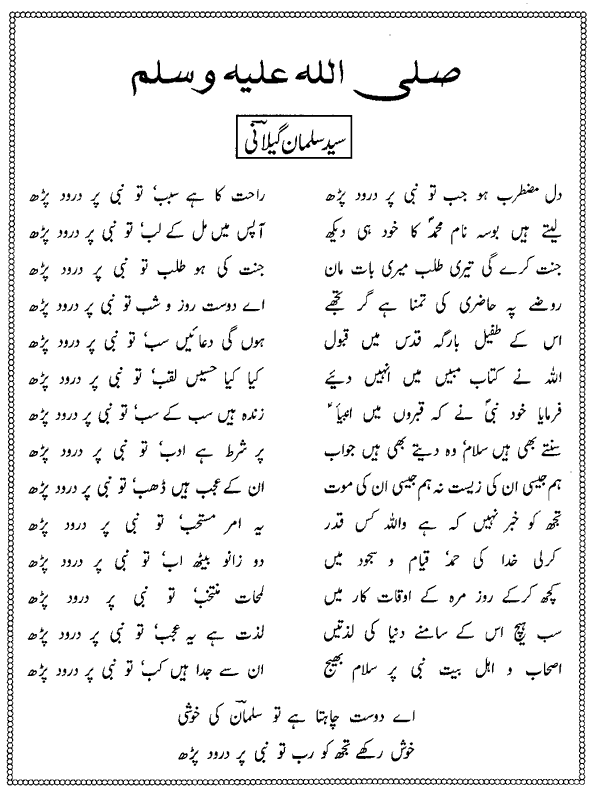 صلی اللہ علیہ وسلم
سید سلمان گیلانیؔ
دل مضطرب ہو جب تو نبی پر درود پڑھ راحت کا ہے سبب، تو نبی پر درود پڑھ
لیتے ہیں بوسہ نام محمدؐ کا خود ہی دیکھ آپس میں مل کے لب، تو نبی پر درود پڑھ
جنت کرے گی تیری طلب میری بات مان جنت کی ہو طلب تو نبی پر درود پڑھ
روضے پہ حاضری کی تمنا ہے گر تجھے اے دوست روز و شب تو نبی پر درود پڑھ
اس کے طفیل بارگہ قدس میں قبول ہوں گی دعائیں سب، تو نبی پر درود پڑھ
اللہ نے کتاب مبیں میں انہیں دیئے کیا کیا حسیں لقب، تو نبی پر درود پڑھ
فرمایا خود نبیؐ نے کہ قبروں میں انبیاءؑ زندہ ہیں سب کے سب، تو نبی پر درود پڑھ
سنتے بھی ہیں سلام، وہ دیتے بھی ہیں جواب پر شرط ہے ادب، تو نبی پر درود پڑھ
ہم جیسی ان کی زیست نہ ہم جیسی ان کی موت ان کے عجب ہیں ڈھب، تو نبی پر درود پڑھ
تجھ کو خبر نہیں کہ ہے واللہ کس قدر یہ امر مستحب، تو نبی پر درود پڑھ
کرلی خدا کی حمد، قیام و سجود میں دو زانو بیٹھ اب، تو نبی پر درود پڑھ
کچھ کرکے روز مرہ کے اوقات کار میں لمحات منتخب، تو نبی پر درود پڑھ
سب ہیچ اس کے سامنے دنیا کی لذتیں لذت ہے یہ عجب، تو نبی پر درود پڑھ
اصحاب و اہل بیت نبی پر سلام بھیج ان سے جدا ہیں کب، تو نبی پر درود پڑھ
اے دوست چاہتا ہے تو سلمانؔ کی خوشی
خوش رکھے تجھ کو رب تو نبی پر درود پڑھ